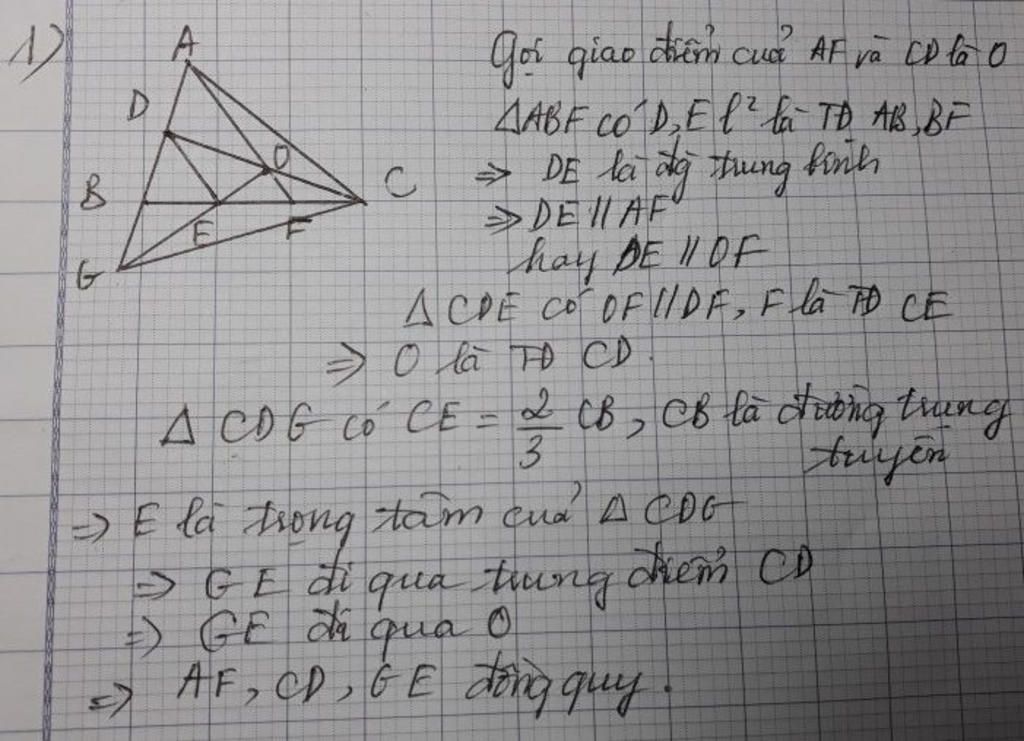 1)
A
D
O
B
C
E
F
G
Gọi giao điểm của AF và CD là O
ΔABF có D, E l² là TĐ AB, BF
⇒ DE là đg trung bình
⇒ DE // AF
hay DE // OF
Δ CDE có OF // DF, F là TĐ CE
⇒ O là TĐ CD.
Δ CDG có CE = 2/3 CB, CB là đường trung
tuyến
⇒ E là trọng tâm của Δ CDG
⇒ GE đi qua trung điểm CD
⇒ GE đi qua O
⇒ AF, CD, GE đồng quy.